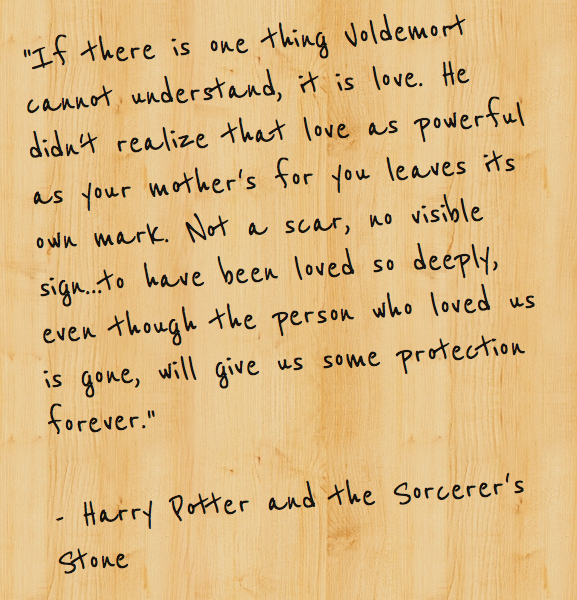 "If there is one thing Voldemort
cannot understand, it is love. He
didn't realize that love as powerful
as your mother's for you leaves its
own mark. Not a scar, no visible
sign...to have been loved so deeply,
even though the person who loved us
is gone, will give us some protection
forever."
- Harry Potter and the Sorcerer's
Stone